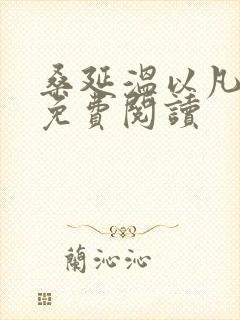 桑延溫以凡
免費閱讀
蘭沁沁